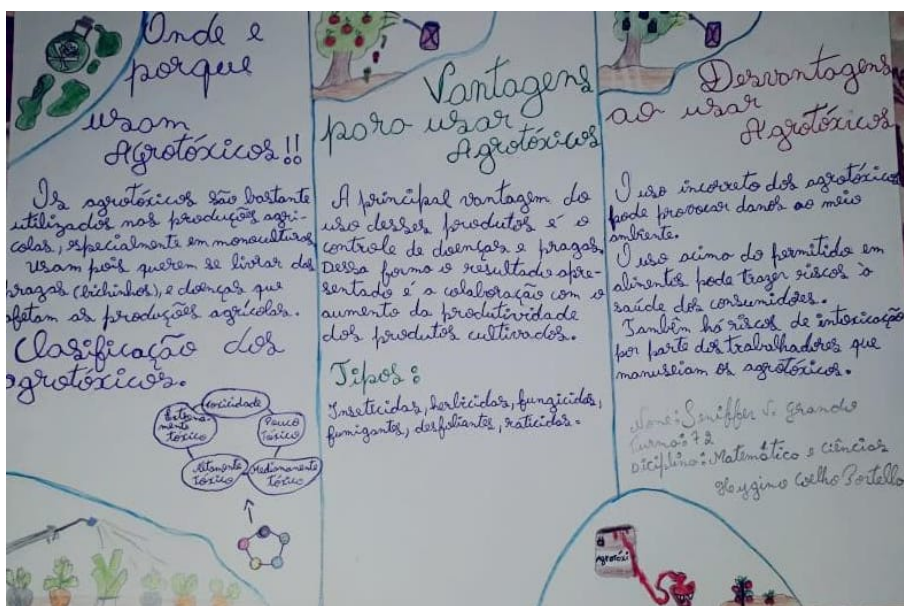 Onde e
porque
usam
Agrotóxicos!!
Os agrotóxicos são bastante
utilizados nas produções agrí-
colas, especialmente em monoculturas
Usam pois querem se livrar das
pragas (bichinhos), e doenças que
afetam as produções agrícolas.
Clasificação dos
agrotóxicos.
toxicidade
Extrema-
mente
tóxico
Pouco
Tóxico
Altamente
Tóxico
Medianamente
tóxico
Vantagens
para usar
Agrotóxicos
A principal vantagem do
uso desses produtos é o
controle de doenças e pragas.
Dessa forma o resultado apre-
sentado é a colaboração com o
aumento da produtividade
dos produtos cultivados.
Tipos:
Insetecidas, herbicidas, fungicidas,
fumigantes, desfoliantes, raticidas.
Desvantagens
ao usar
Agrotóxicos
O uso incorreto dos agrotóxicos
pode provocar danos ao meio
ambiente.
O uso acima do permitido em
alimentos pode trazer riscos à
saúde dos consumidores.
Também há riscos de intoxicação
por parte dos trabalhadores que
manuseiam os agrotóxicos.
Nome: Seniffer V. Grando
Turma: 72
Diciplina: Matemática e Ciências
Heygino Coelho Portello
Agrotóxi